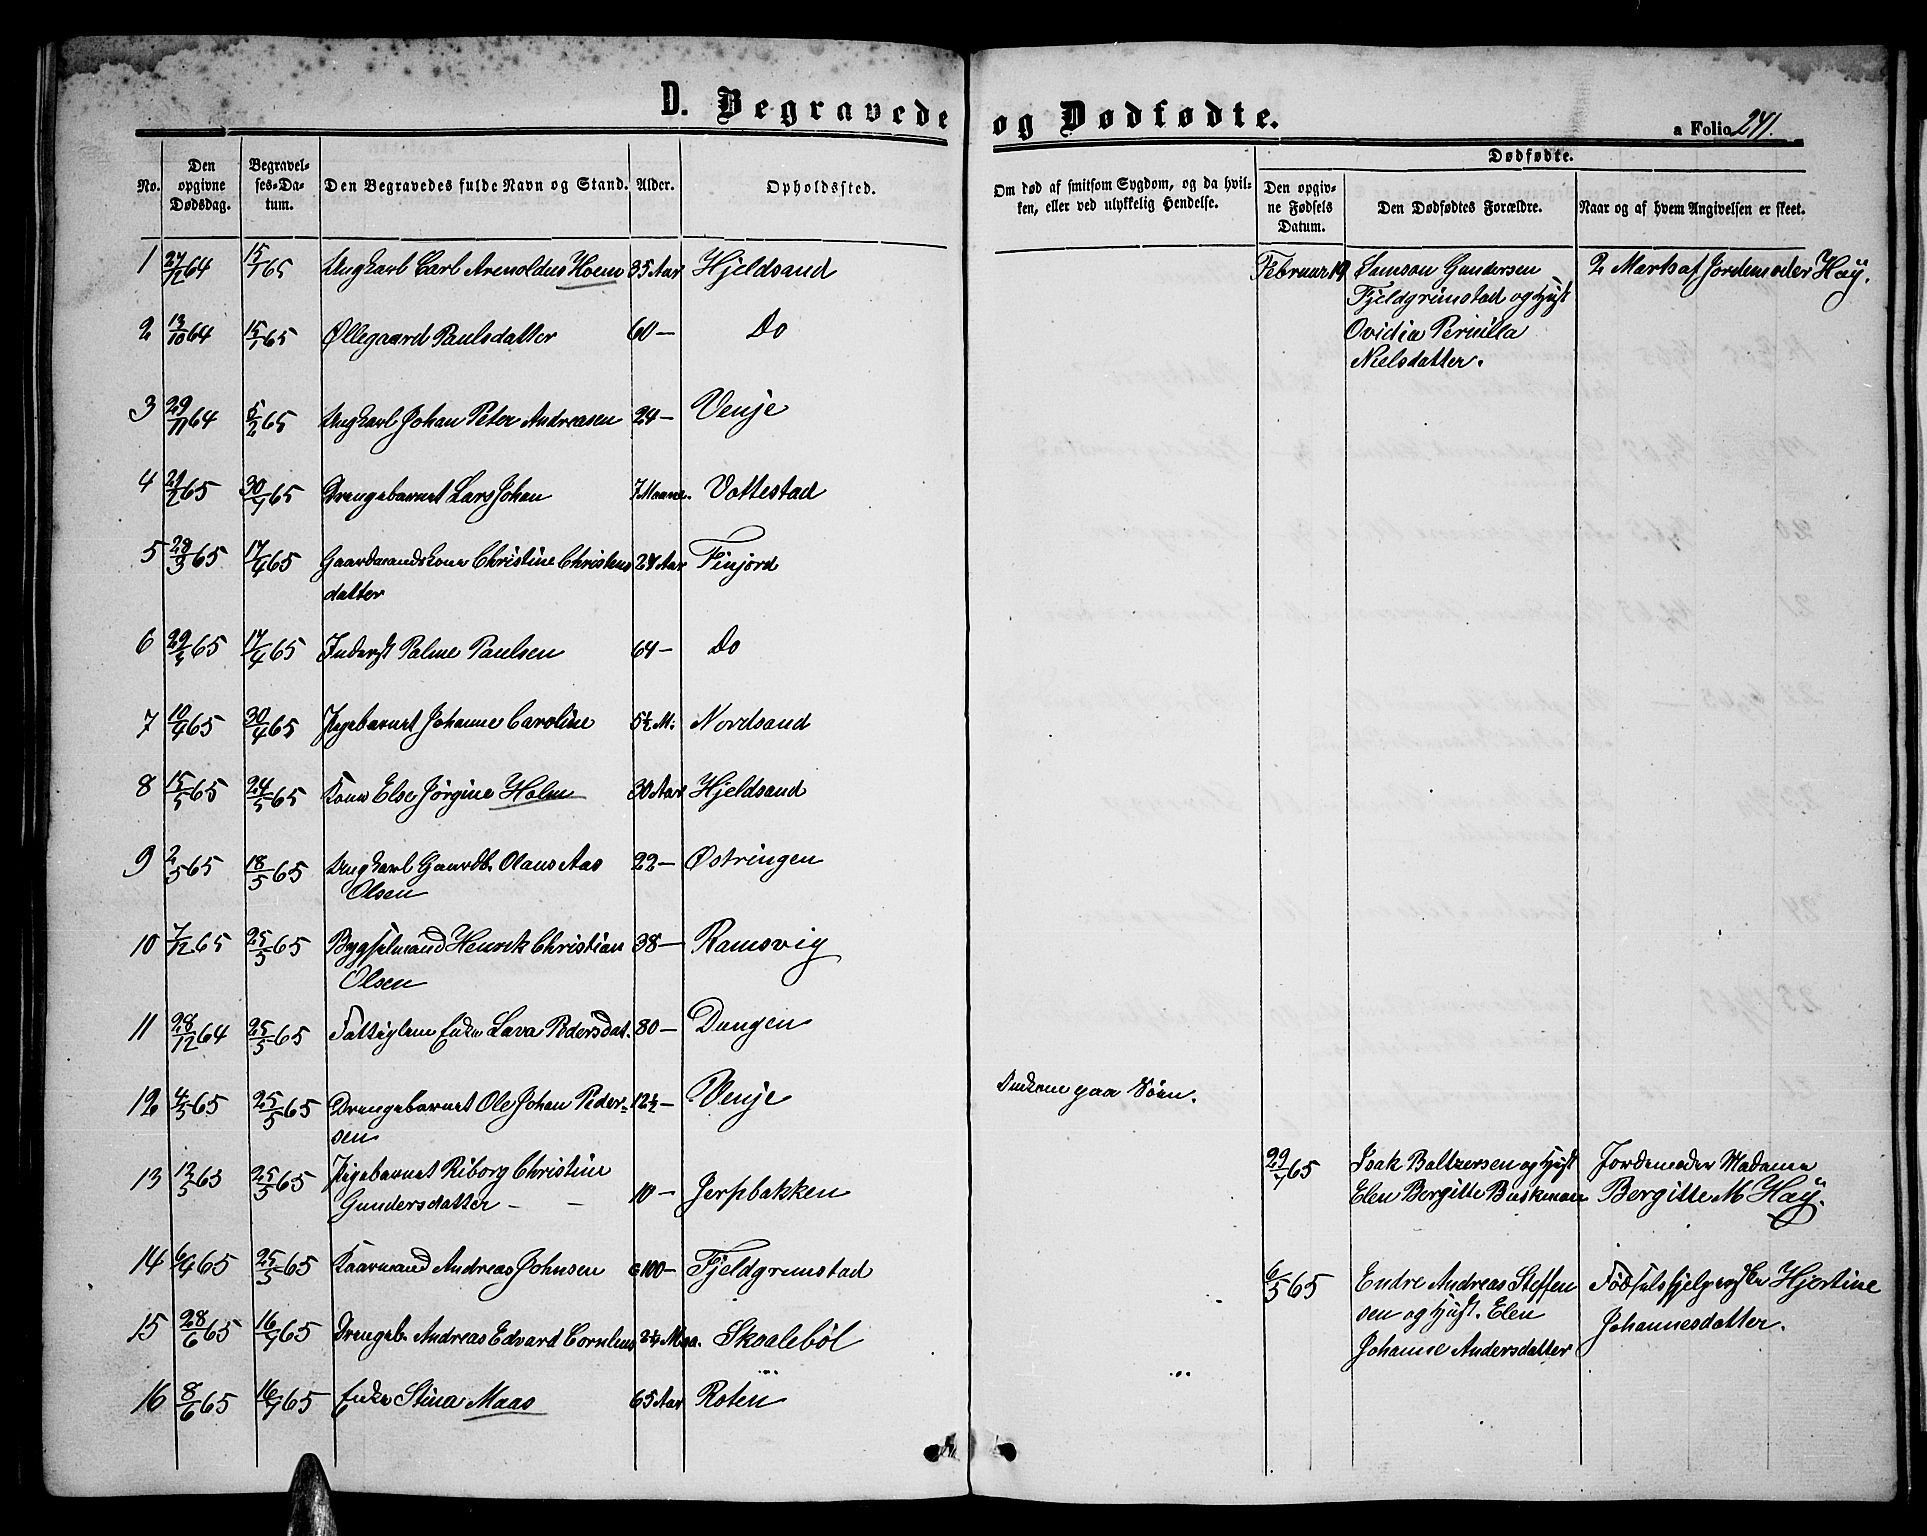 D. Begravede og Dødfødte.
a Folio 241.
No.
Den opgivne Dødsdag.
Begravelses-Datum.
Den Begravedes fulde Navn og Stand.
Alder.
Opholdssted.
Om død af smitsom Sygdom, og da hvilken, eller ved ulykkelig Hendelse.
Dødfødte.
Den opgivne Fødsels Datum.
Den Dødfødtes Forældre.
Naar og af hvem Angivelsen er skeet.
1 27/12 64 15/1 65 Ungkarl Carl Arenoldus Hoem 35 Aar Hjeldsand
2 13/10 64 15/1 65 Øllegaard Paulsdatter 60 — Do
3 29/11 64 5/2 65 Ungkarl Johan Peter Andreasen 24 — Venje
4 65 30/4 65 Drengebarnet Lars Johan 7 Maaned. Vottestad
5 28/3 65 17/4 65 Gaardmandskone Christine Christens
datter 24 Aar Finjord
6 65 17/4 65 Inderst Palme Paulsen 64 — Do
7 10/4 65 30/4 65 Pigebarnet Johanne Caroline 5½ M: Nordsand
8 15/5 65 24/5 65 Kone Else Jørgine Holm 30 Aar Hjeldsand
9 2/5 65 18/5 65 Ungkarl Gaardb. Olaus Aas
Olsen 22 — Østringen
10 7/12 65 25/5 65 Bygselmand Henrik Christian
Olsen 38 — Ramsvig
11 28/12 64 25/5 65 Fattiglem Enke Lava Pedersdat. 80 — Dungen
12 4/5 65 25/5 65 Drengebarnet Ole Johan Peder-
sen 12½ — Venje
Druknne paa Søen.
13 12/5 65 25/5 65 Pigebarnet Riborg Christine
Gundersdatter — 10 — Jerpbakken
14 6/4 65 25/5 65 Kaarmand Andreas Johnsen c 100 — Fjeldgrimstad
15 28/6 65 16/7 65 Drengeb. Andreas Edvard Cornlius 2¼ Maa. Skoalebøl
16 8/6 65 16/7 65 Enke Stina Maas 65 Aar Roten
Februar 19 Samson Gundersen
Fjeldgrimstad og Hust
Ovidia Pernilla
Nielsdatter.
2 Marts af Jordemoder Haÿ.
65 Isak Baltzersen og Hust
Elen Bergitte Buskman
Jordemoder Madame
Bergitte M Haÿ.
6/5 65 Endre Andreas Steffen
sen og Hust. Elen
Johanne Andersdatter
Fødselshjelperske Hjertine
Johannesdatter.